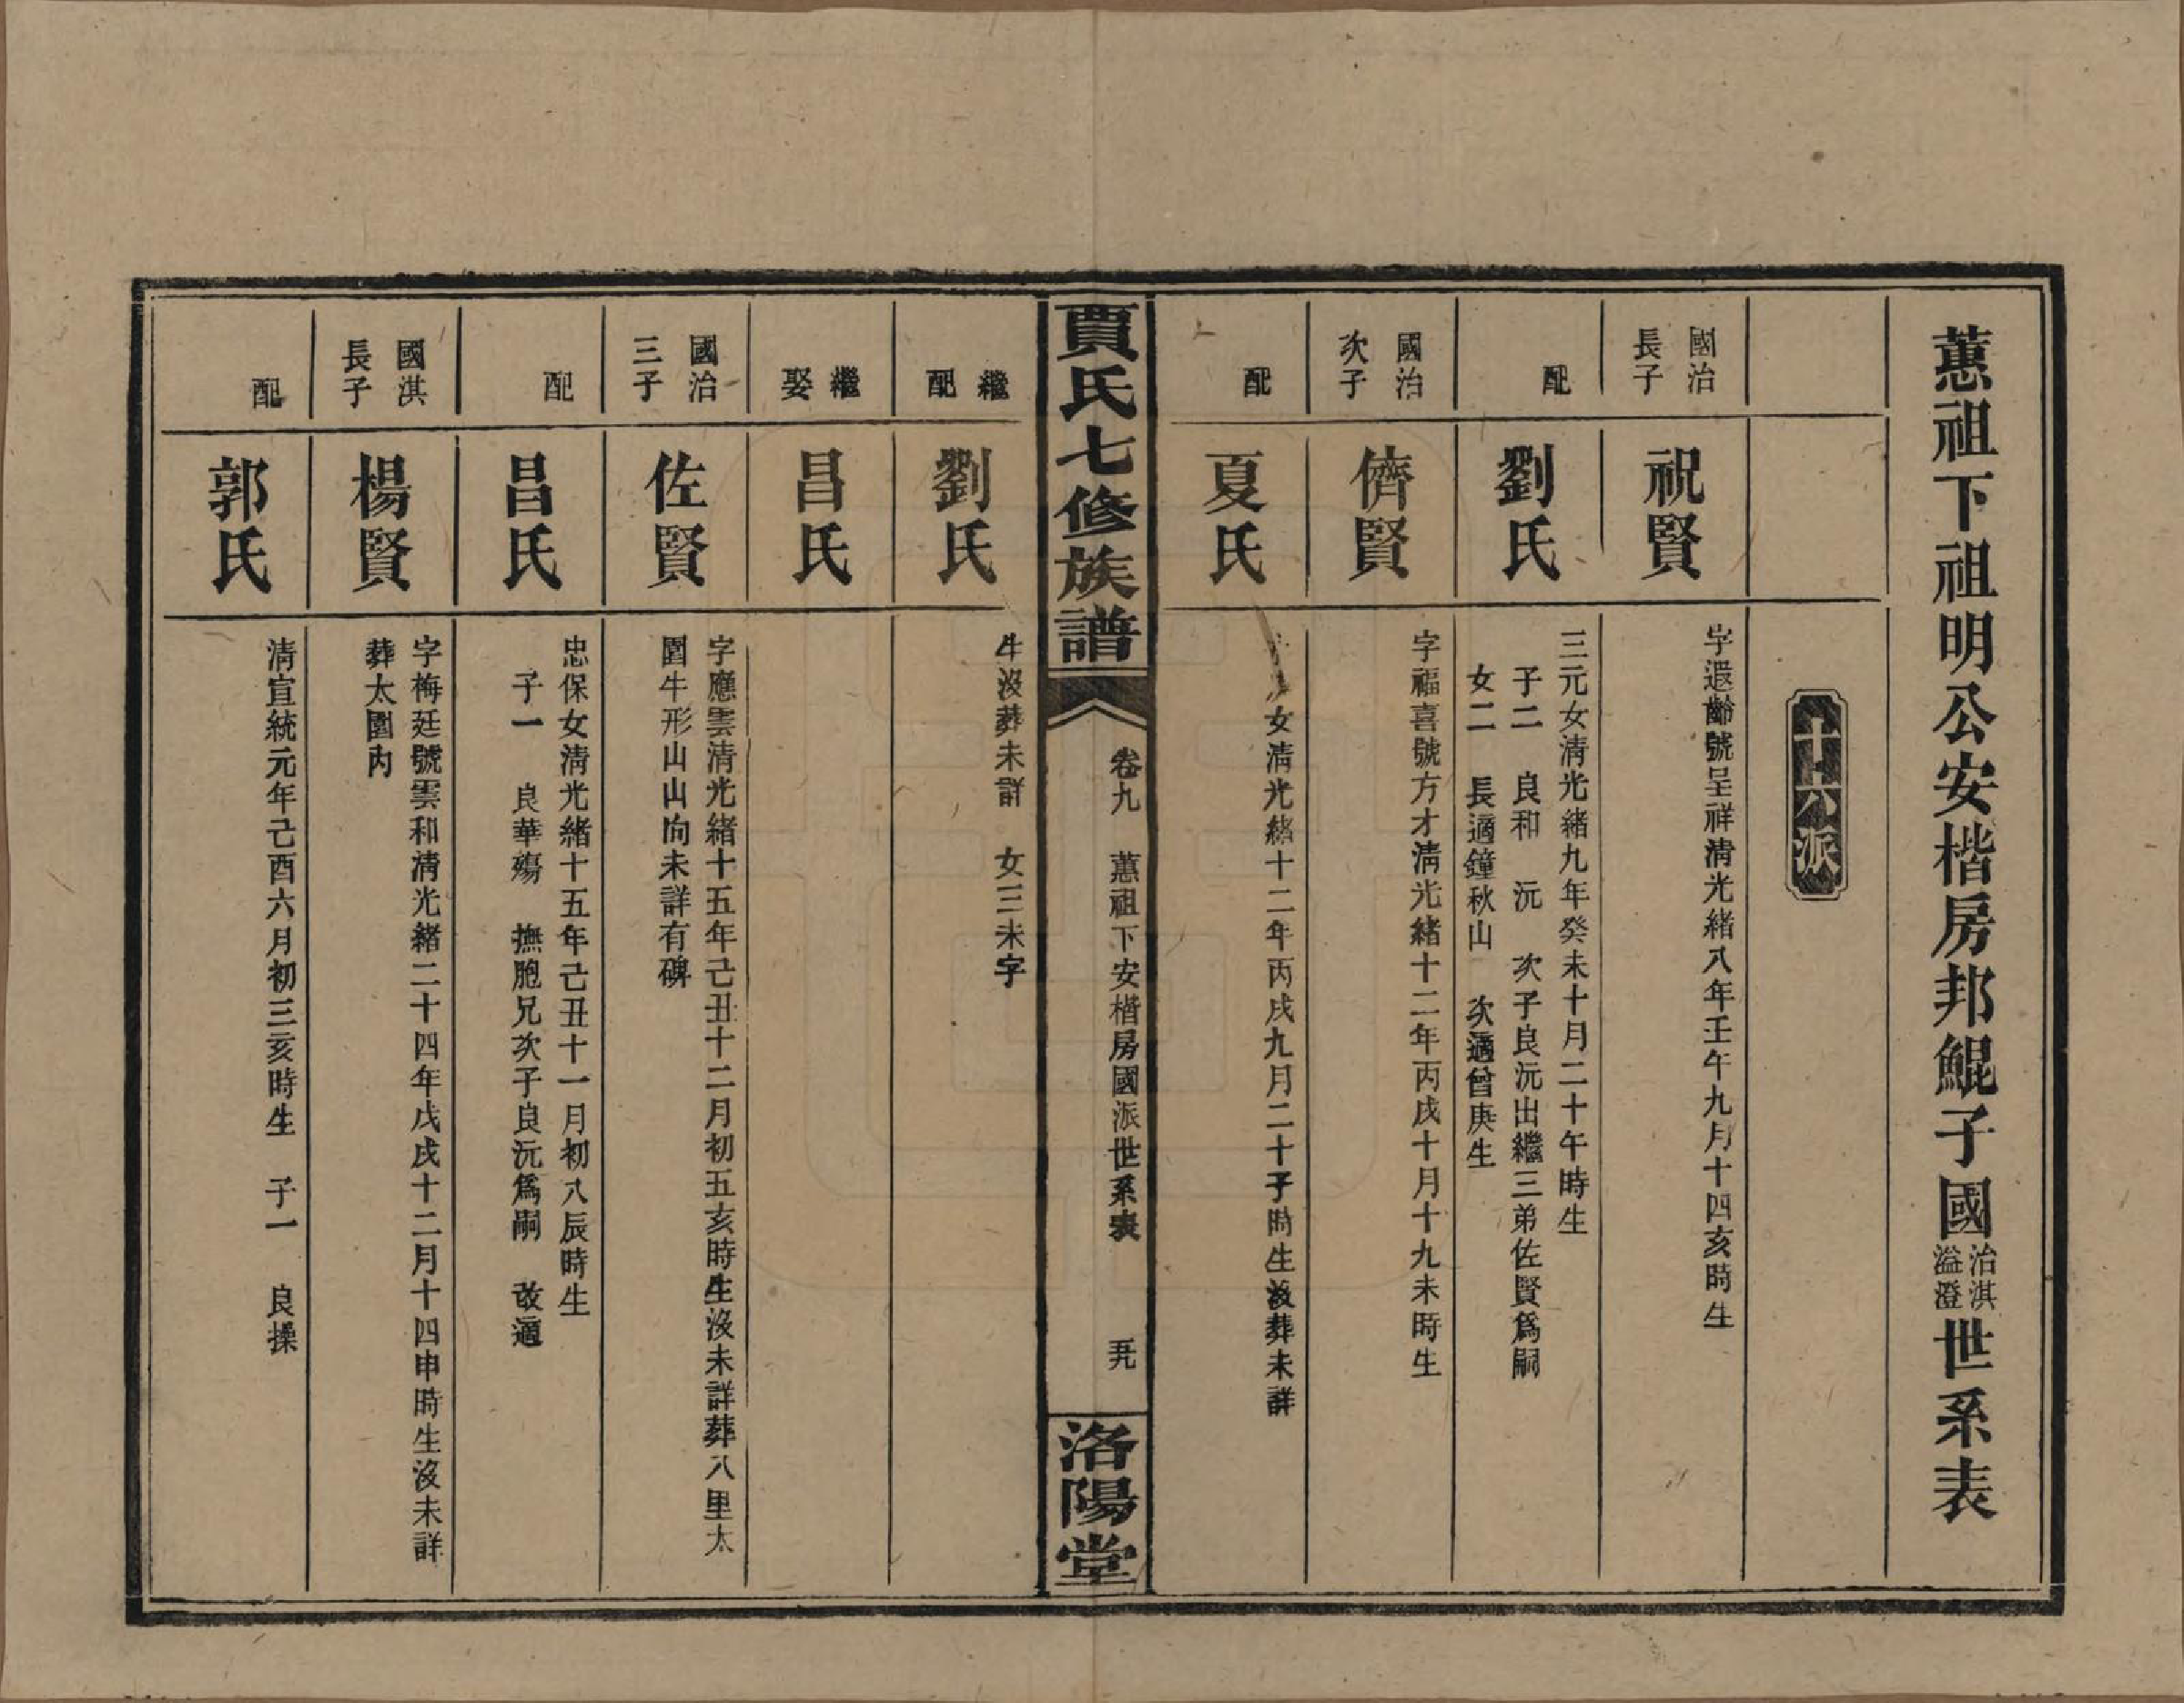 蕙祖下祖明公安楷房邦鯤子國治淇溢澄世系表
十六派
國治長子
祝賢
字遐齡號呈祥清光緒八年壬午九月十四亥時生
配
劉氏
三元女清光緒九年癸未十月二十午時生
子二 良和 沅 次子良沅出繼三弟佐賢爲嗣
女二 長適鐘秋山 次適曾庚生
國治次子
儕賢
字福喜號方才清光緒十二年丙戌十月十九未時生
配
夏氏
女清光緒十二年丙戌九月二十子時生沒葬未詳
賈氏七修族譜
卷九 蕙祖下安楷房國派世系表
五九
洛陽堂
繼配
劉氏
生沒葬未詳 女三未字
繼娶
昌氏
國治三子
佐賢
字應雲清光緒十五年己丑十二月初五亥時生沒未詳葬八里太
圍牛形山山向未詳有碑
配
昌氏
忠保女清光緒十五年己丑十一月初八辰時生
子一 良華殤 撫胞兄次子良沅爲嗣 改適
國淇長子
楊賢
字梅廷號雲和清光緒二十四年戊戌十二月十四申時生沒未詳
葬太圍內
配
郭氏
清宣統元年己酉六月初三亥時生 子一 良操